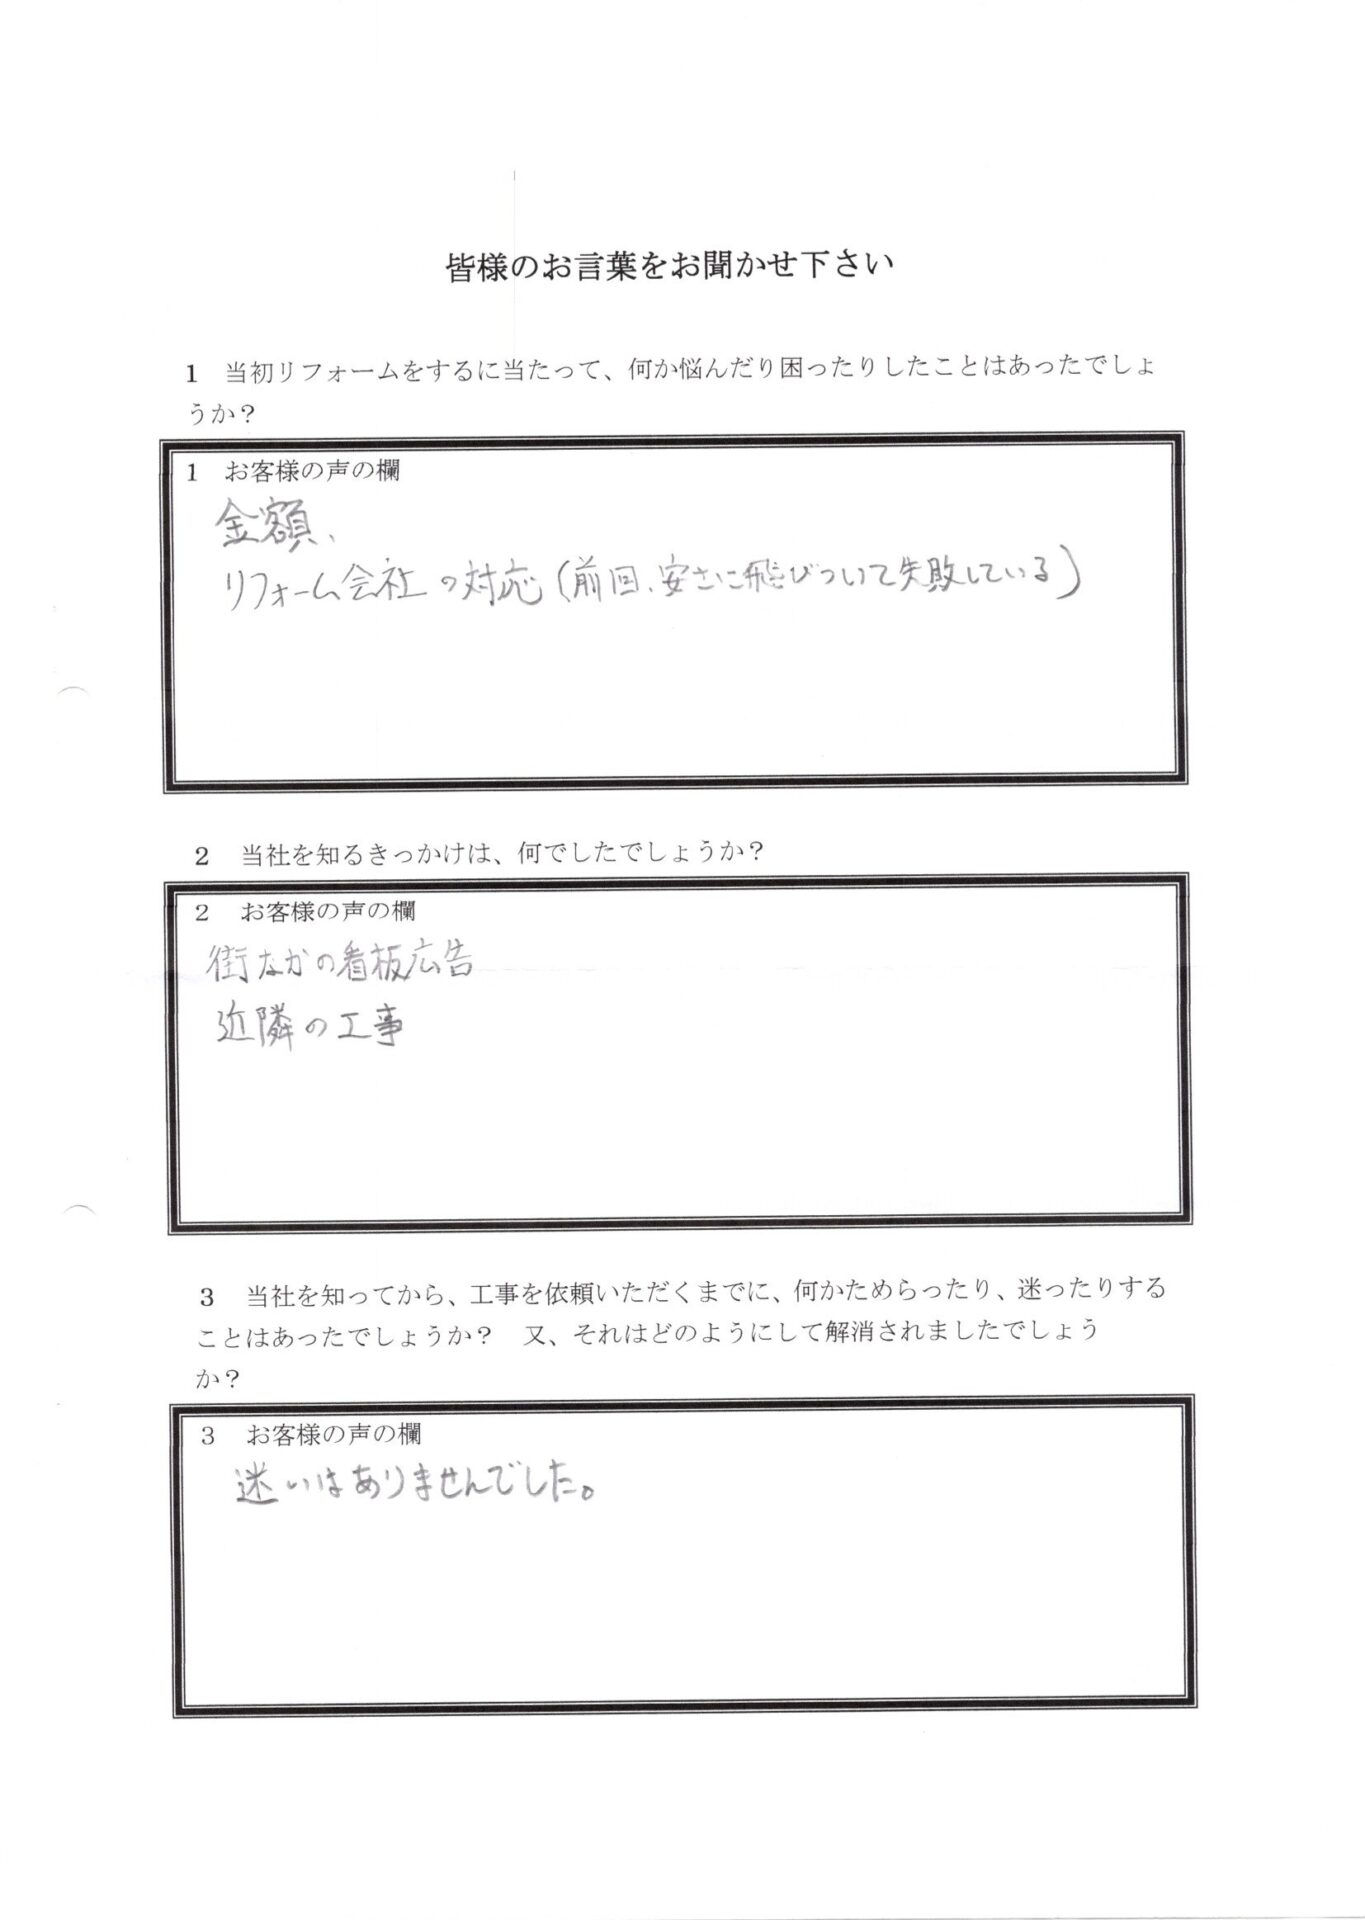 皆様のお言葉をお聞かせ下さい
1　当初リフォームをするに当たって、何か悩んだり困ったりしたことはあったでしょ
うか？
1　お客様の声の欄
金額、
リフォーム会社の対応(前回、安さに飛びついて失敗している)
2　当社を知るきっかけは、何でしたでしょうか？
2　お客様の声の欄
街なかの看板広告
近隣の工事
3　当社を知ってから、工事を依頼いただくまでに、何かためらったり、迷ったりする
ことはあったでしょうか？　又、それはどのようにして解消されましたでしょう
か？
3　お客様の声の欄
迷いはありませんでした。